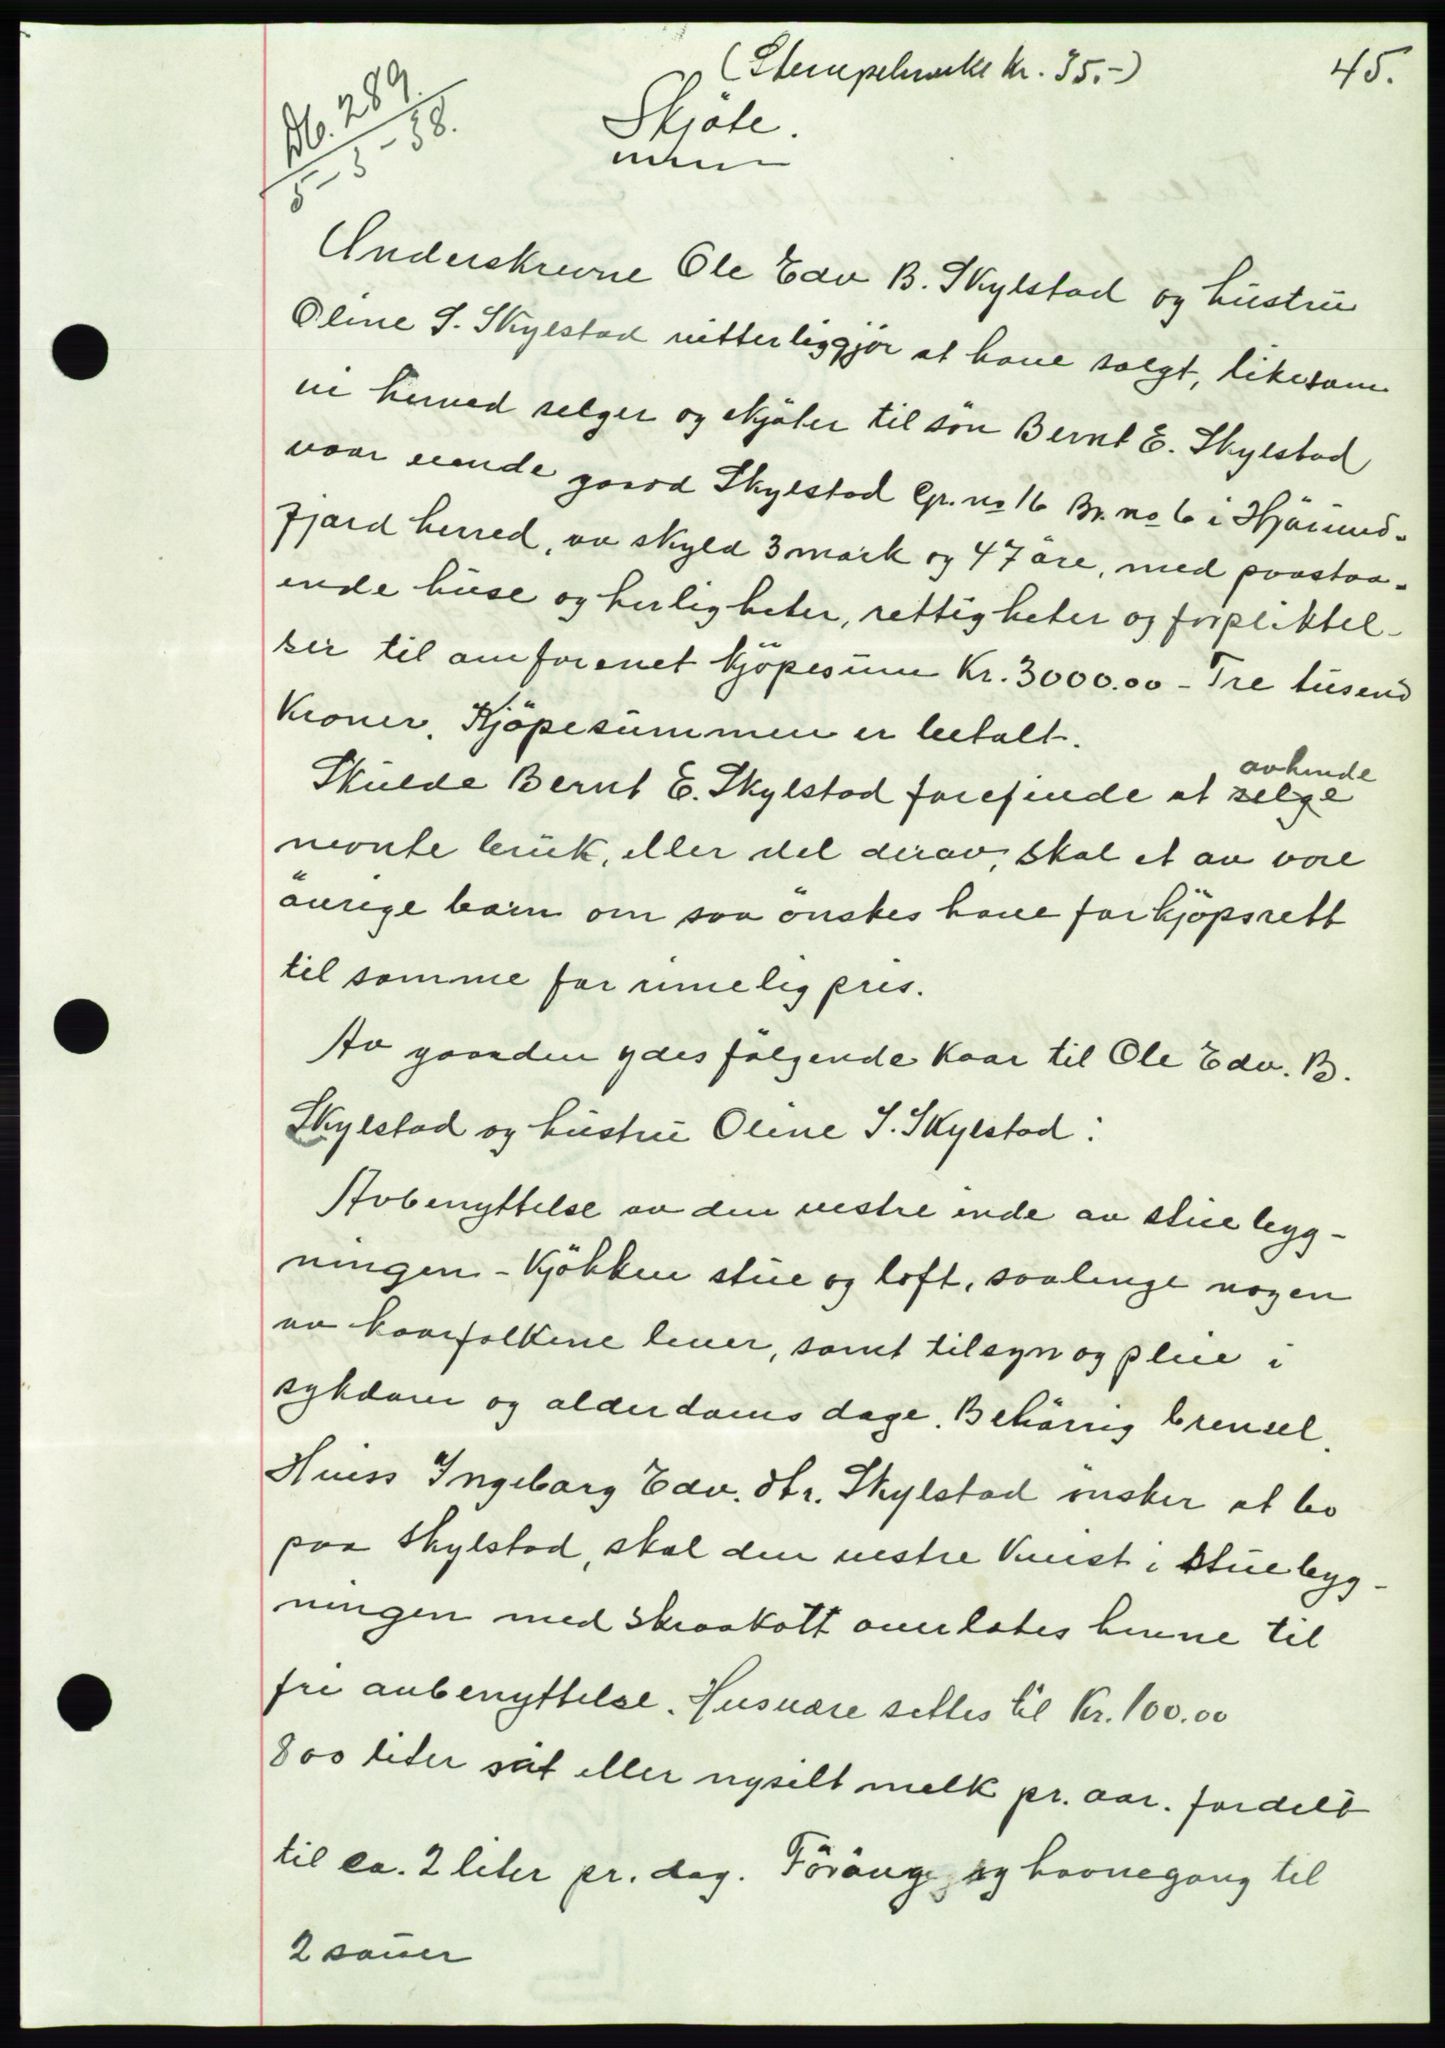 (Stempelmerke kr. 35.-)
45.
Db. 289.
5-3-38.
Skjöte.
Underskrevne Ole Edv B. Skylstad og hustru
Oline S. Skylstad vitterliggjör at have solgt, likesom
vi herved selger og skjöter til sön Bernt E. Skylstad
vaar eiende gaard Skylstad Gr. no 16 Br. no 6 i Hjörund-
fjord herred, av skyld 3 mark og 47 öre, med paastaa-
ende huse og herligheter, rettigheter og forpliktel-
ser til omforenet kjöpesum Kr. 3000.00 - Tre tusend
Kroner. Kjöpesummen er betalt.
Skulde Bernt E. Skylstad forefinde at selge avhende
nevnte bruk, eller del derav, skal et av vore
övrige barn om saa önskes have forkjöpsrett
til samme for rimelig pris.
Av gaarden ydes fölgende kaar til Ole Edv. B.
Skylstad og hustru Oline S. Skylstad:
Avbenyttelse av den vestre ende av stuebyg-
ningen - Kjökken stue og loft, saalenge nogen
av kaarfolkene lever, samt tilsyn og pleie i
sykdom og alderdoms dage. Behörig brensel.
Hviss Ingeborg Edv. dtr. Skylstad önsker at bo
paa Skylstad, skal den vestre Kvist i stuebyg-
ningen med skraakott overlates henne til
fri avbenyttelse. Husvære settes til Kr. 100.00
800 liter söt eller nysilt melk pr. aar. fordelt
til ca. 2 liter pr. dag. og havnegang til
2 sauer